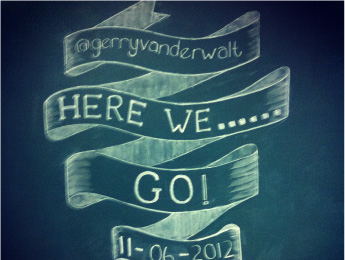 @gerryvanderwalt
HERE WE......
GO!
11-06-2012